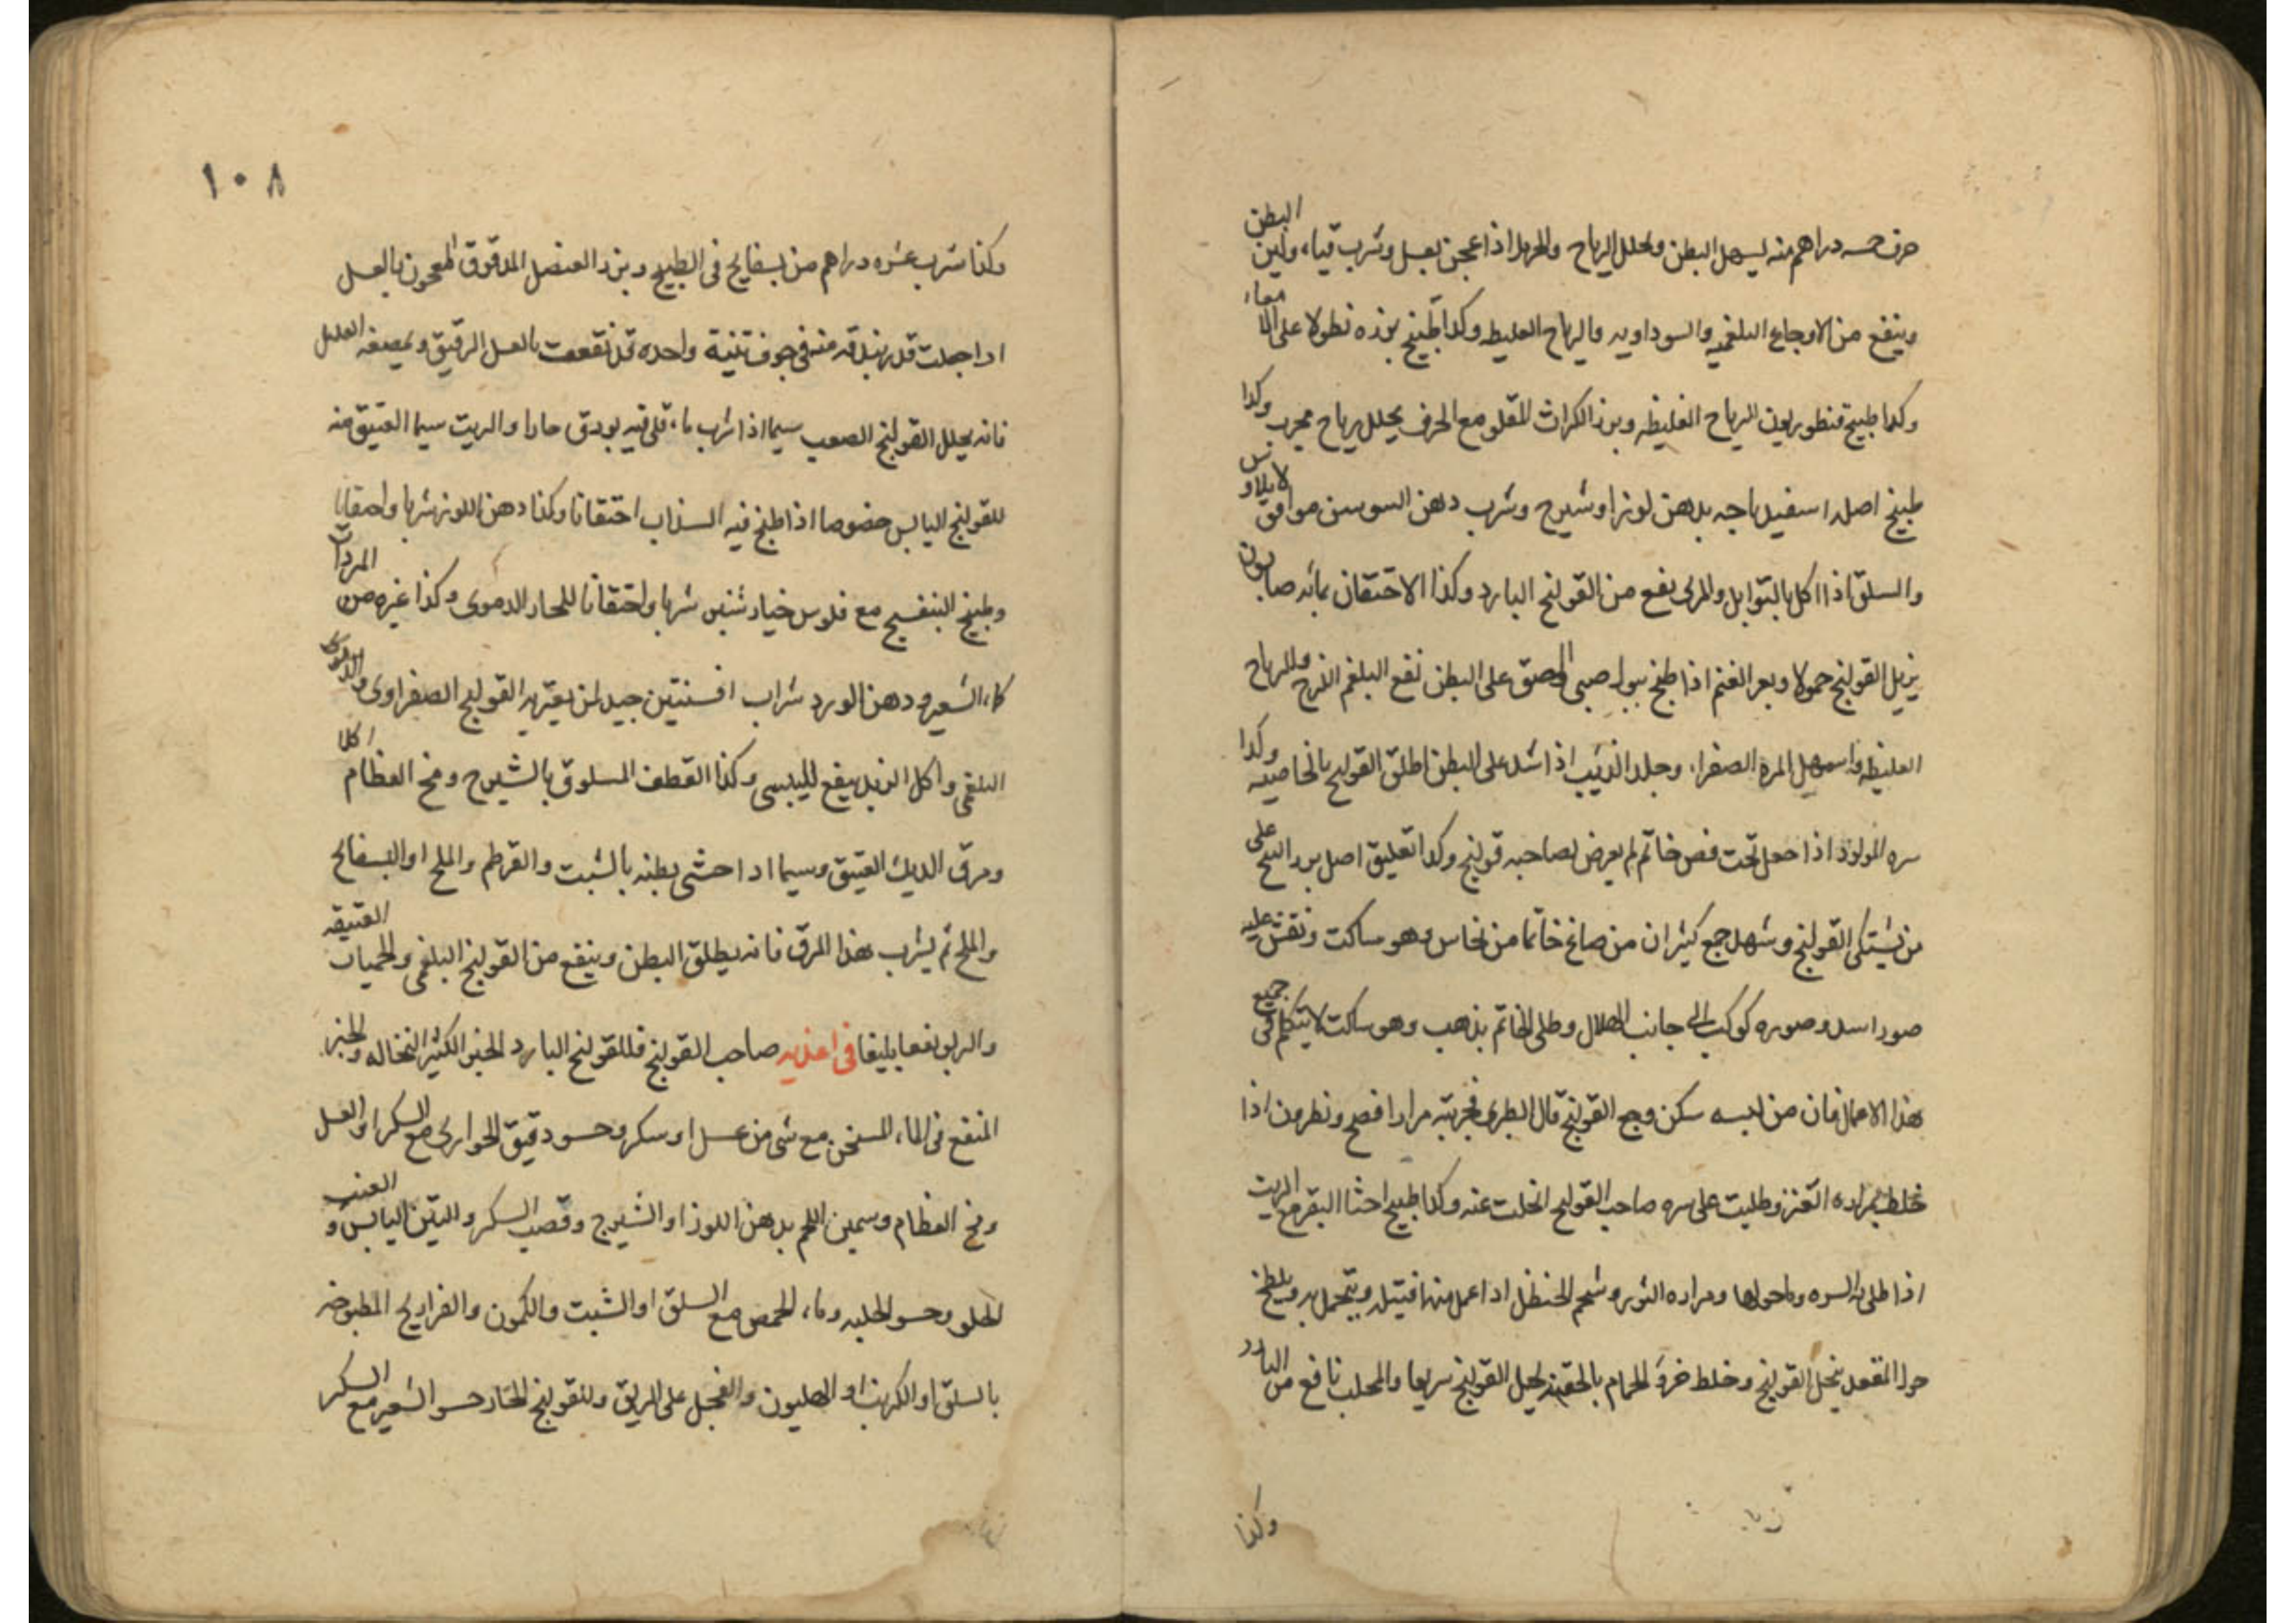 حرف خمسه دراهم منه يسهل البطن ويحلل الرياح والحرمل اذا عجن بعسل وشرب قيا، ولين البطن
وينفع من الاوجاع البلغميه والسوداويه والرياح الغليظه وكذا طبيخ بزره نطولا على الامعاء
وكذا طبيخ قنطوريون الرياح الغليظه وبزر الكراث المقلو مع الحرف يحلل رياح مجرب وكذا
طبيخ اصله اسفيدباجه بدهن لوز او شيرج وشرب دهن السوسن موافق لايلاوس
والسلق اذا اكل بالتوابل والمرى نفع من القولنج البارد وكذا الاحتقان بمائه صابون
يزيل القولنج حمولا وبعر الغنم اذا طبخ ببول صبى والصق على البطن نفع البلغم اللزج والرياح
الغليظه واسهل المرة الصفرا، وجلد الذيب اذا شد على البطن اطلق القولنج بالخاصيه وكذا
سره المولود اذا جعل تحت فص خاتم لم يعرض لصاحبه قولنج وكذا تعليق اصل على
من يشتكى القولنج وشهد جمع كثيران من صاغ خاتما من نحاس وهو ساكت ونقش عليه
صوره اسد وصوره كوكب الى جانب الهلال وطلى الخاتم بذهب وهو ساكت لا يتكلم فى جميع
هذا الاعمال فان من لبسه سكن وجع القولنج قال الطبرى فجربته مرارا فصح ونطرون اذا
خلط بمراره العنز وطليت على سره صاحب القولنج انحلت عنه وكذا طبيخ اخثا البقر مع الزيت
اذا طلى به السره وما حولها ومراره الثور وشحم الحنظل اذا عمل منها فتيله ويتحمل به ويلطخ
حول المقعد يخل القولنج وخلط خرؤ الحمام بالحقنه يحل القولنج سريعا والمحلب نافع من البارد
وكذا
١٠٨
وكذا شرب عشره دراهم من بسفايج فى الطبيخ وبزر العنصل المدقوق المعجون بالعسل
اذا جعلت قدر بندقه منه فى جوف تينة واحده قد نقعت بالعسل الرقيق ويمصغه العليل
فانه يحلل القولنج الصعب سيما اذا شرب ما، قلى فيه بورق حارا والزيت سيما العتيق منه
للقولنج اليابس خصوصا اذا طبخ فيه السذاب احتقانا وكذا دهن اللوز شربا واحتقانا
وطبيخ البنفسج مع فلوس خيار شنبر شربا واحتقانا للحار الدموى وكذا غيره من المبردات
كما، الشعير ودهن الورد شراب افسنتين جيد لمن يعتريه القولنج الصفراوى والدموى
البلغمى واكل الزبد ينفع لليبسى وكذا القطف المسلوق بالشيرج ومخ العظام اكلا
ومرق الديك العتيق وسيما اذا حشى بطنه بالشبت والقرطم والملح او البسفايج
والملح ثم يشرب هذا المرق فانه يطلق البطن وينفع من القولنج البلغمى والحميات العتيقه
والربو نفعا بليغا فى اغذيه صاحب القولنج فللقولنج البارد الخبز الكثير النخاله والخبز
المنقع فى الما، المسخن مع شى من عسل او سكر وحسو دقيق الحوارى مع السكر او العسل
ومخ العظام وسمين اللحم بدهن اللوز او الشيرج وقصب السكر والتين اليابس والعنب
الحلو وحسو الحلبه وما، الحمص مع السلق او الشبت والكمون والفراريج المطبوخه
بالسلق او الكرنب او الهليون والفجل على الريق وللقولنج الحار حسو الشعير مع السكر